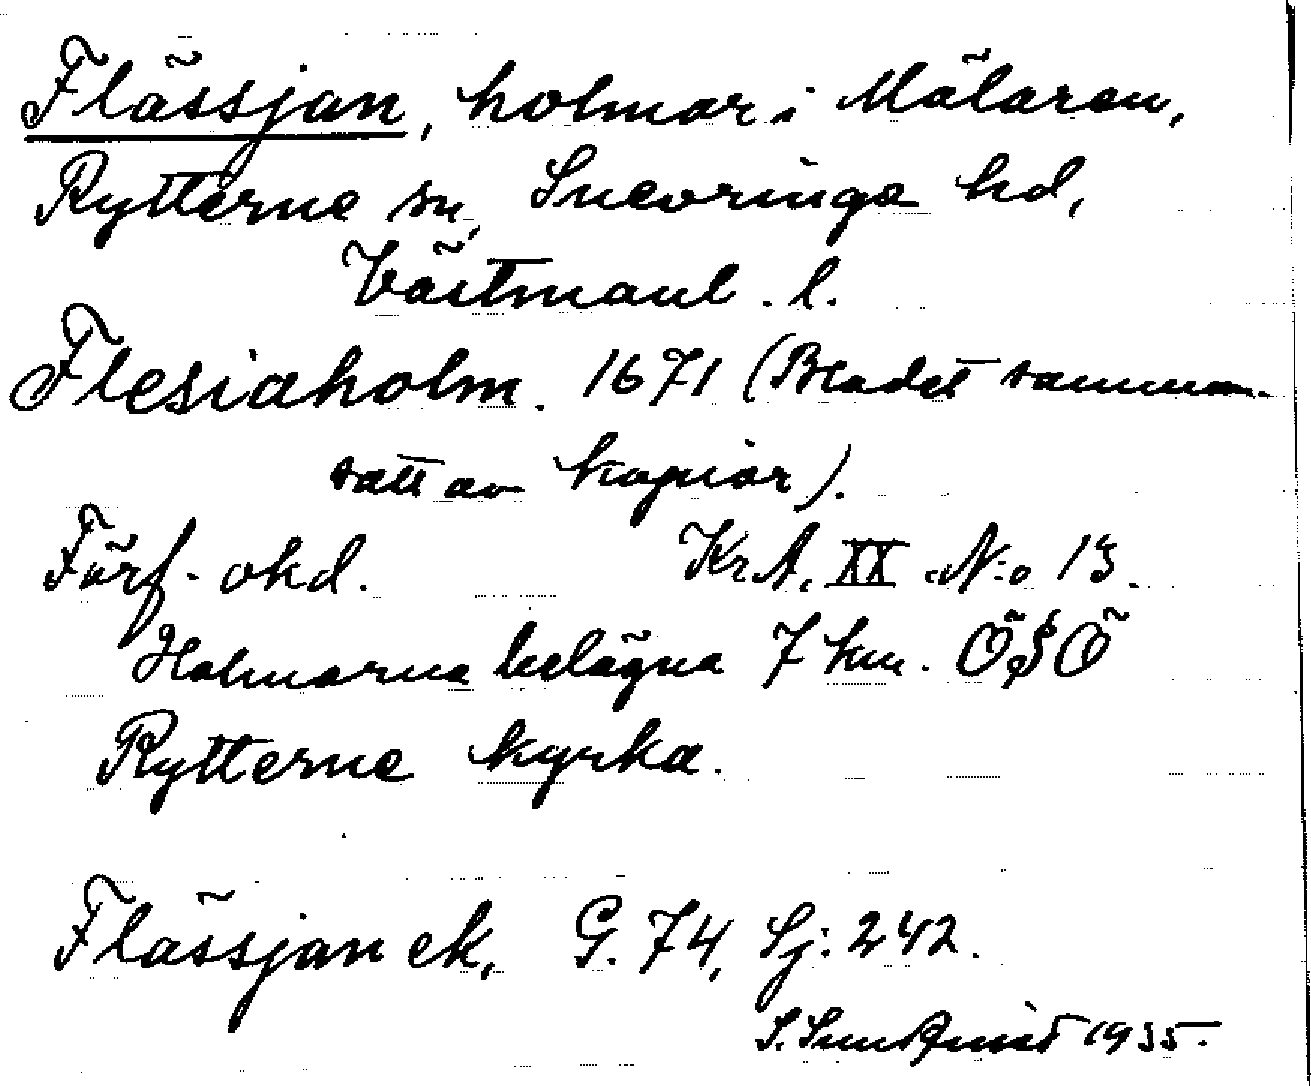 Flässjan, holmar i Mälaren,
Rytterne sn, Snevringe hd,
Västmanl. l.
Flesiaholm. 1671 (Bladet samman-
satt av kopior).
Förf. okd. Kr. A. XX N:o 13.
Holmarna belägna 7 km. ÖSÖ
Rytterne kyrka.
Flässjan ek, G. 74, Sj: 242.
S. Sundqvist 1935.